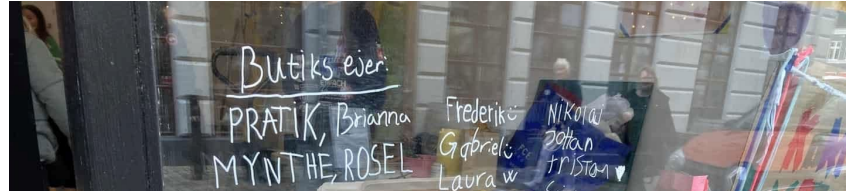 Butiks ejer:
PRATIK, Brianna
MYNTHE, ROSEL
Frederik
Gabriel
Laura W
Nikolaj
Zoltan
tristan